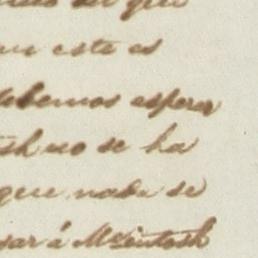 ser que
este es
debemos esperar
sh no se ha
que nada se
sar á McIntosh